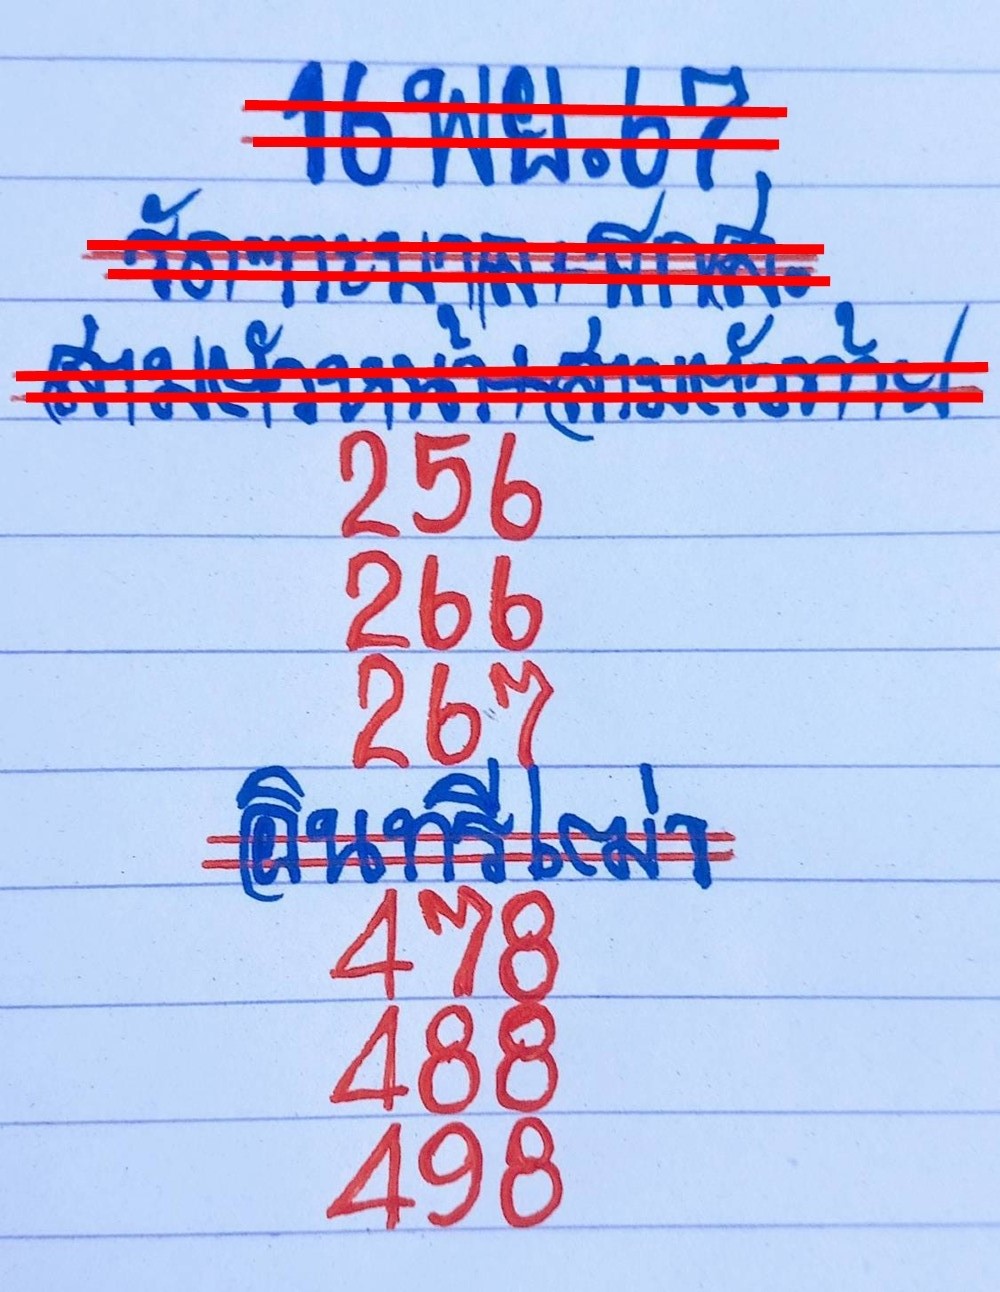 16 พย. 67
สามตัวหน้า + สามตัวท้าย
256
266
267
อินทรีเฒ่า
478
488
498